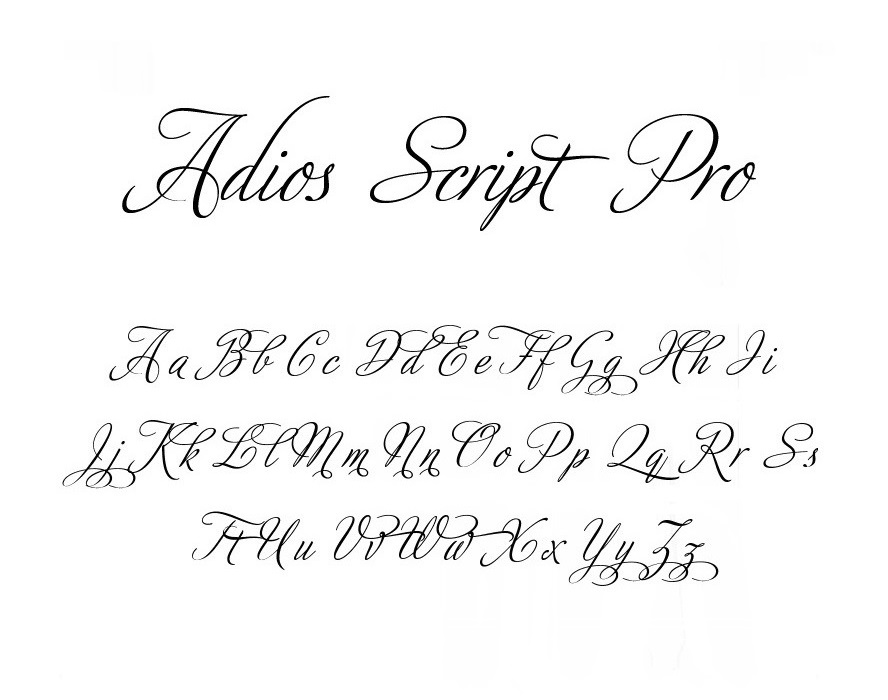 Adios Script Pro
Aa Bb Cc Dd Ee Ff Gg Hh Ii
Jj Kk Ll Mm Nn Oo Pp Qq Rr Ss
Tt Uu Vv Ww Xx Yy Zz